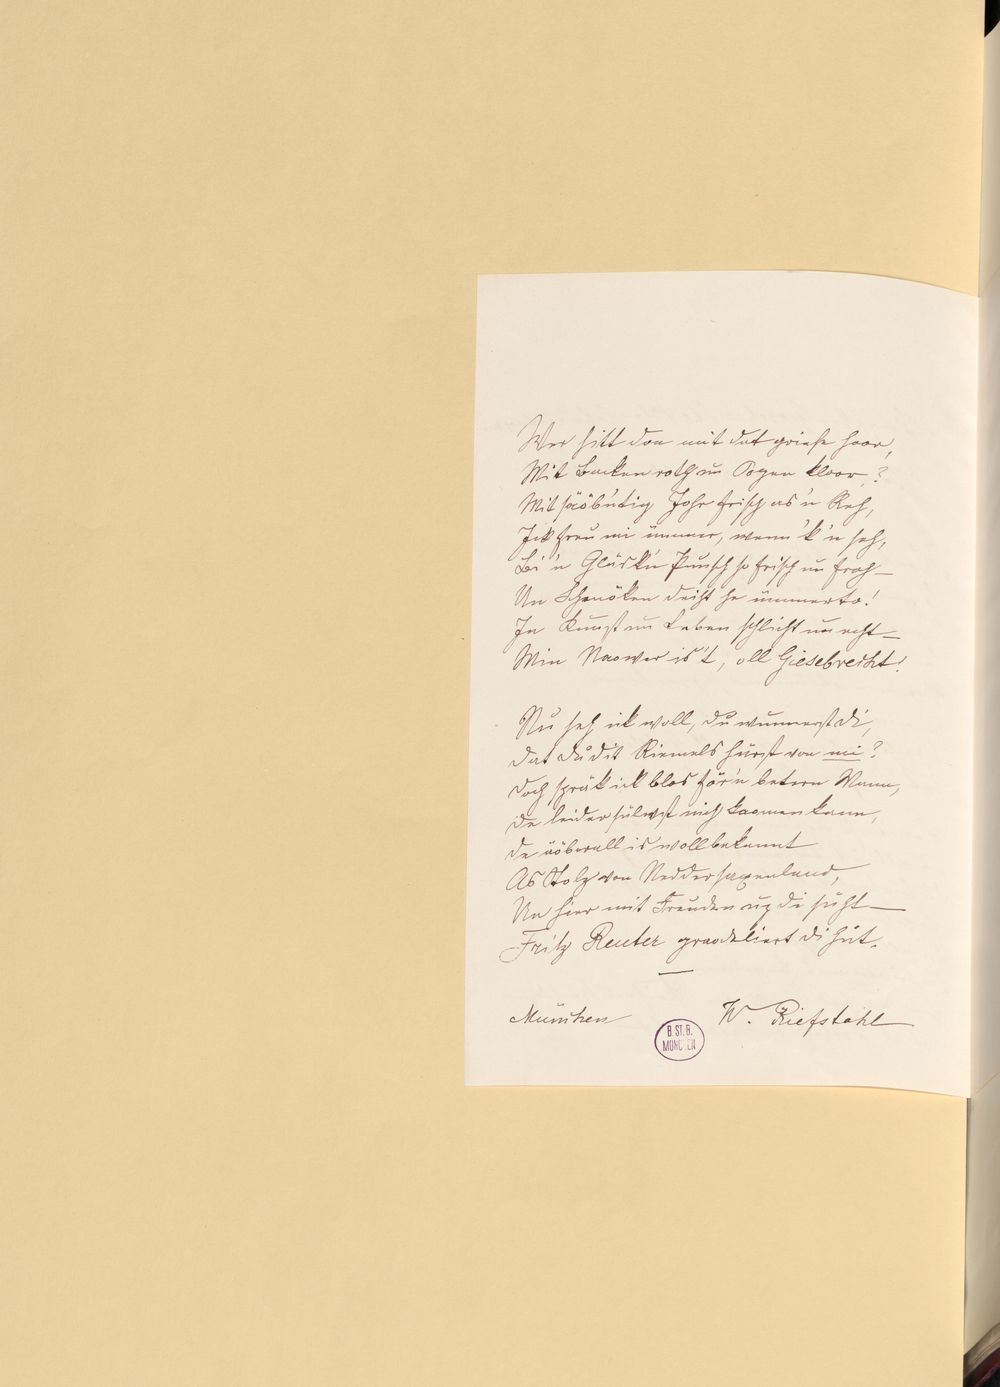 Wer sitt doa mit dat griese Hoor,
Mit Backen roth un Oogen kloor,?
Mit säöbntig Johr frisch as 'n Reh,
Ick freu mi ümmer, wenn 'k 'n seh,
Bi 'n Gläsk'n Punsch so frisch un froh —
Un Schnöken deiht he ümmerto!
In Kunst un Leben schlicht un echt —
Min Naower is't, oll Giesebrecht!
Nu seh ick woll, du wunnerst di,
Dat du dit Riemels hürst von mi?
Doch spräk ick blos för'n betern Mann,
De leider sülwst nich kaomen kann,
De äöberall is woll bekannt
As Stolz von Neddersassenland,
Un hier mit Freuden up di süht —
Fritz Reuter graodeliert di hüt.
—
München W. Riefstahl
B. ST. B.
MÜNCHEN